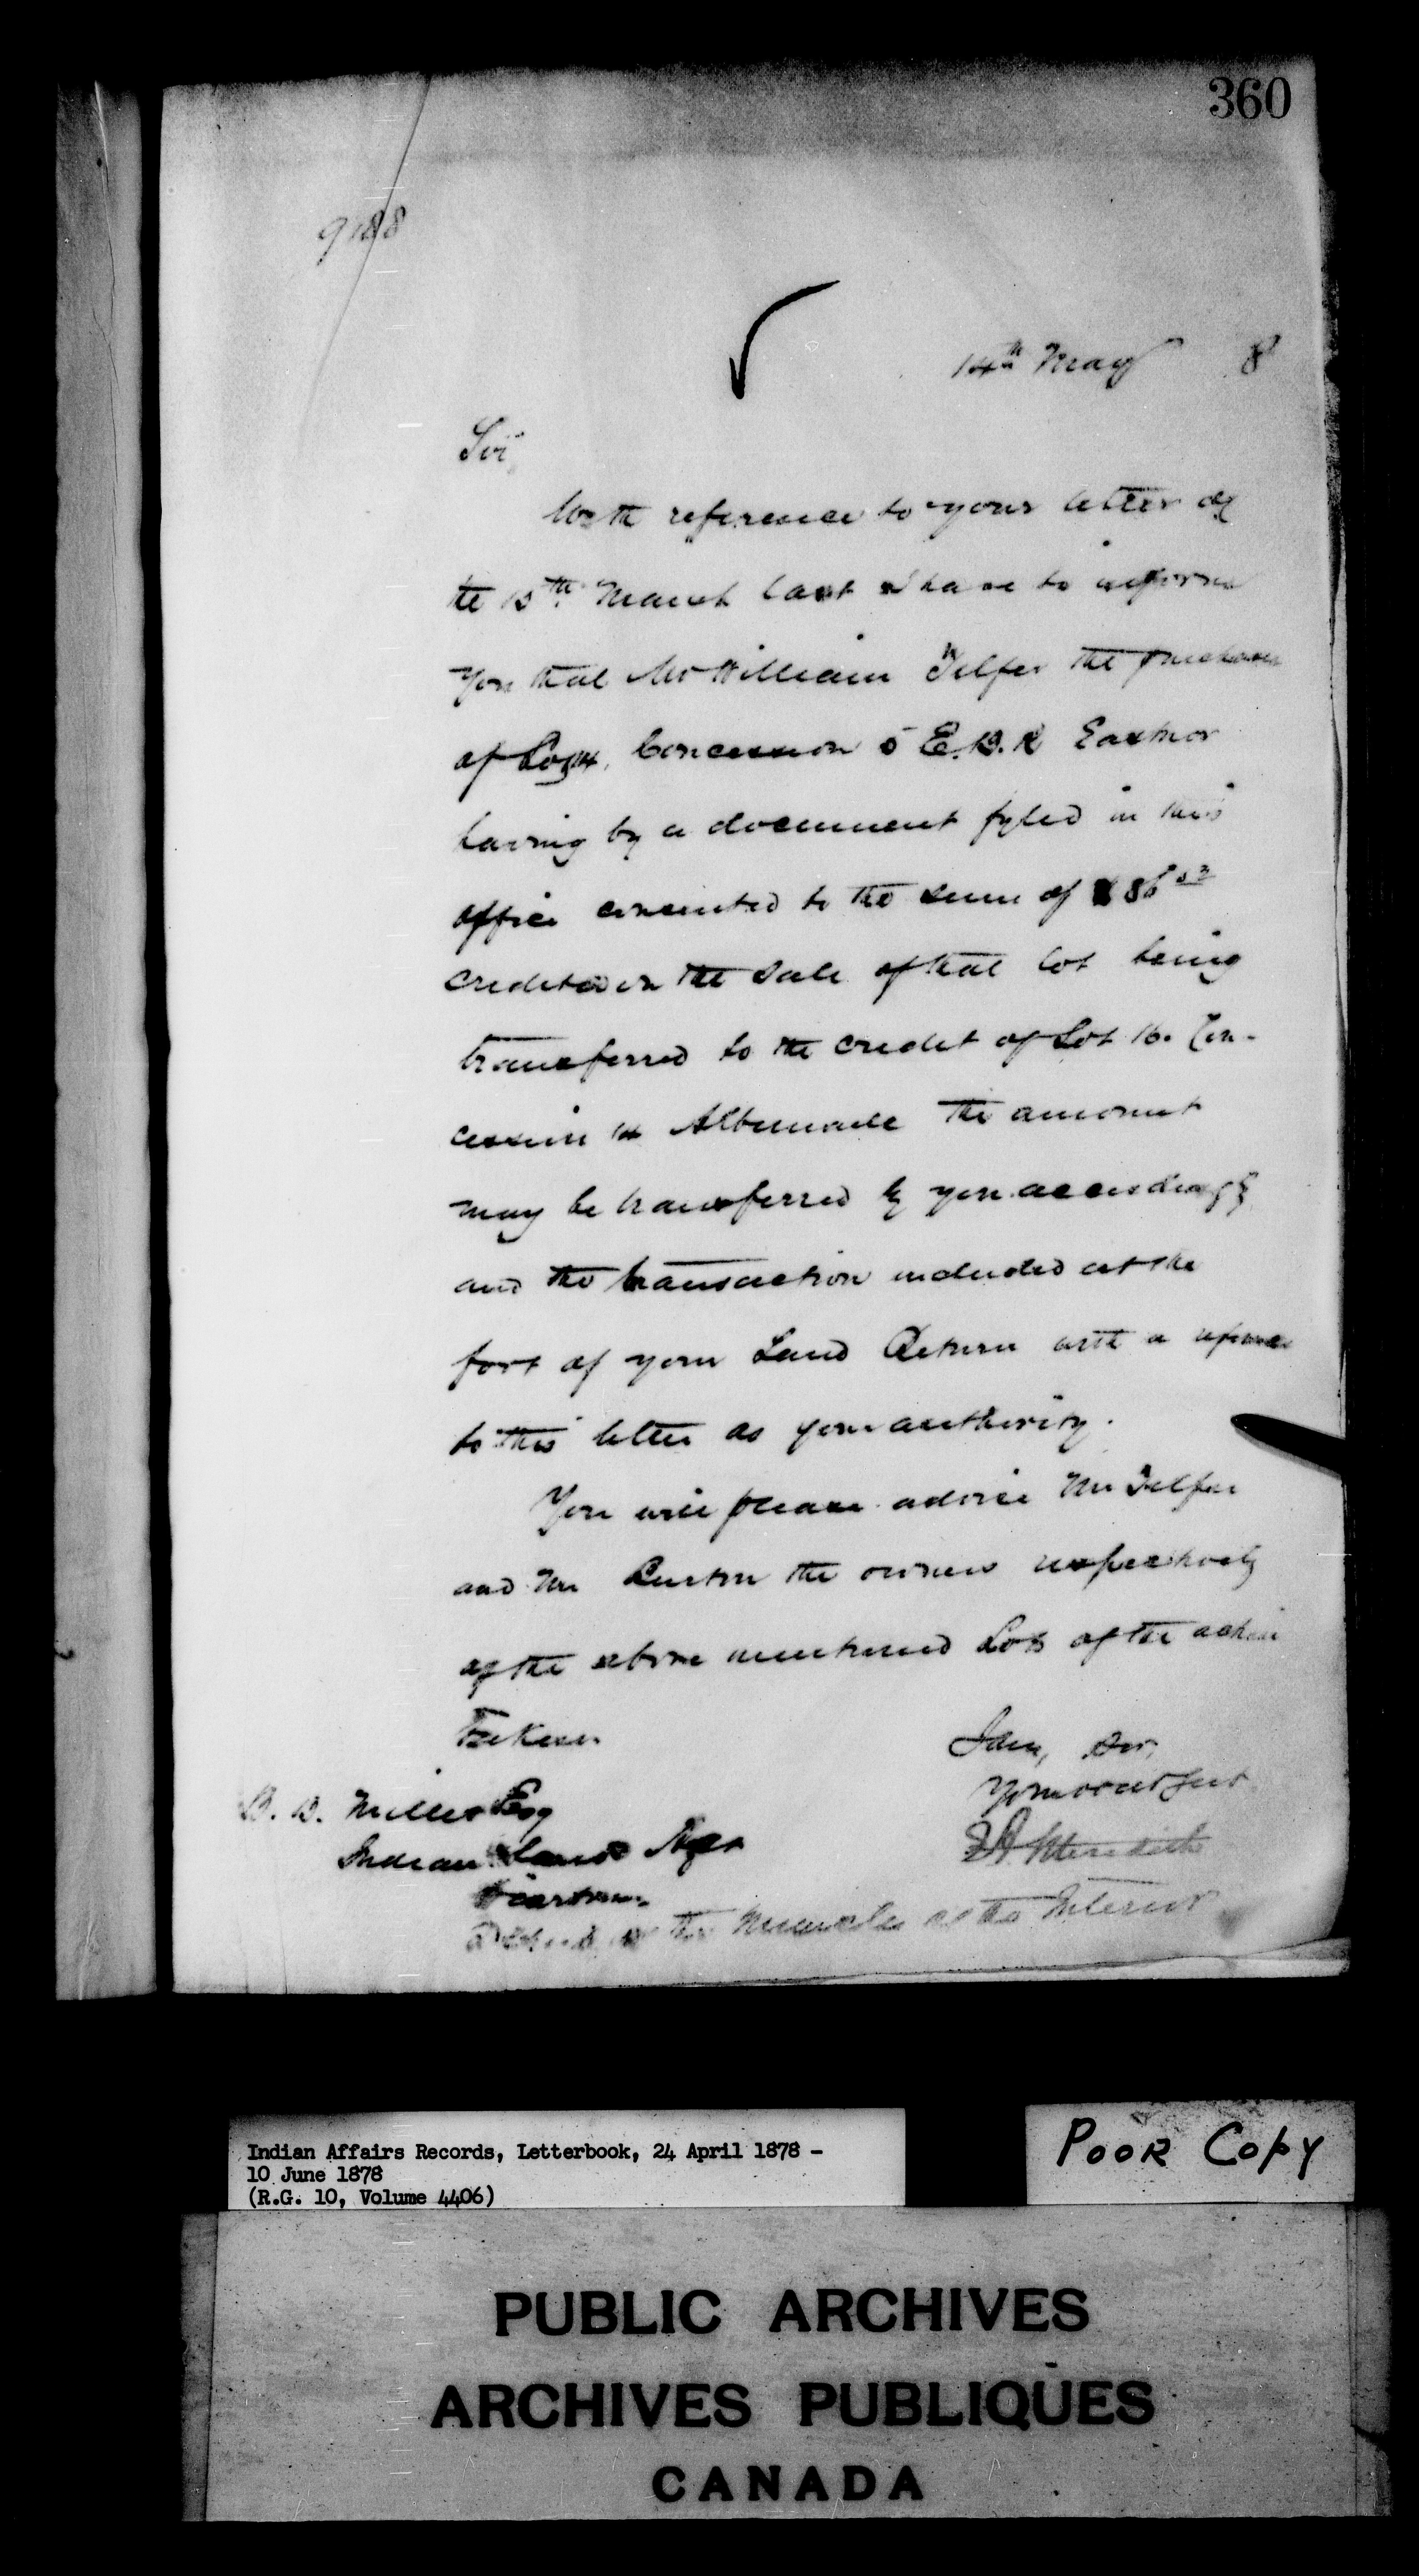 360
9188
14th May 8
Sir,
With reference to your letter of
the 15th March last I have to inform
you that Mr William Telfer the purchaser
of Lot 14, Concession 5 E.B.R Eastnor
having by a document fyled in this
office consented to the sum of $86
credited on the sale of that lot being
transferred to the credit of Lot 16. Con-
cession 14 Albemarle the amount
may be transferred by you accordingly
and the transaction included at the
foot of your Land Return with a reference
to this letter as your authority.
You will please advise Mr Telfer
and Mr the owners respectively
of the above mentioned Lots of the action
taken.
I am, Sir,
Your obedt Servt
B. B. Miller Esq
Indian Land Agt
Wiarton
E A Meredith
Deputy of the Minister of the Interior
Indian Affairs Records, Letterbook, 24 April 1878 -
10 June 1878
(R.G. 10, Volume 4406)
POOR COPY
PUBLIC ARCHIVES
ARCHIVES PUBLIQUES
CANADA